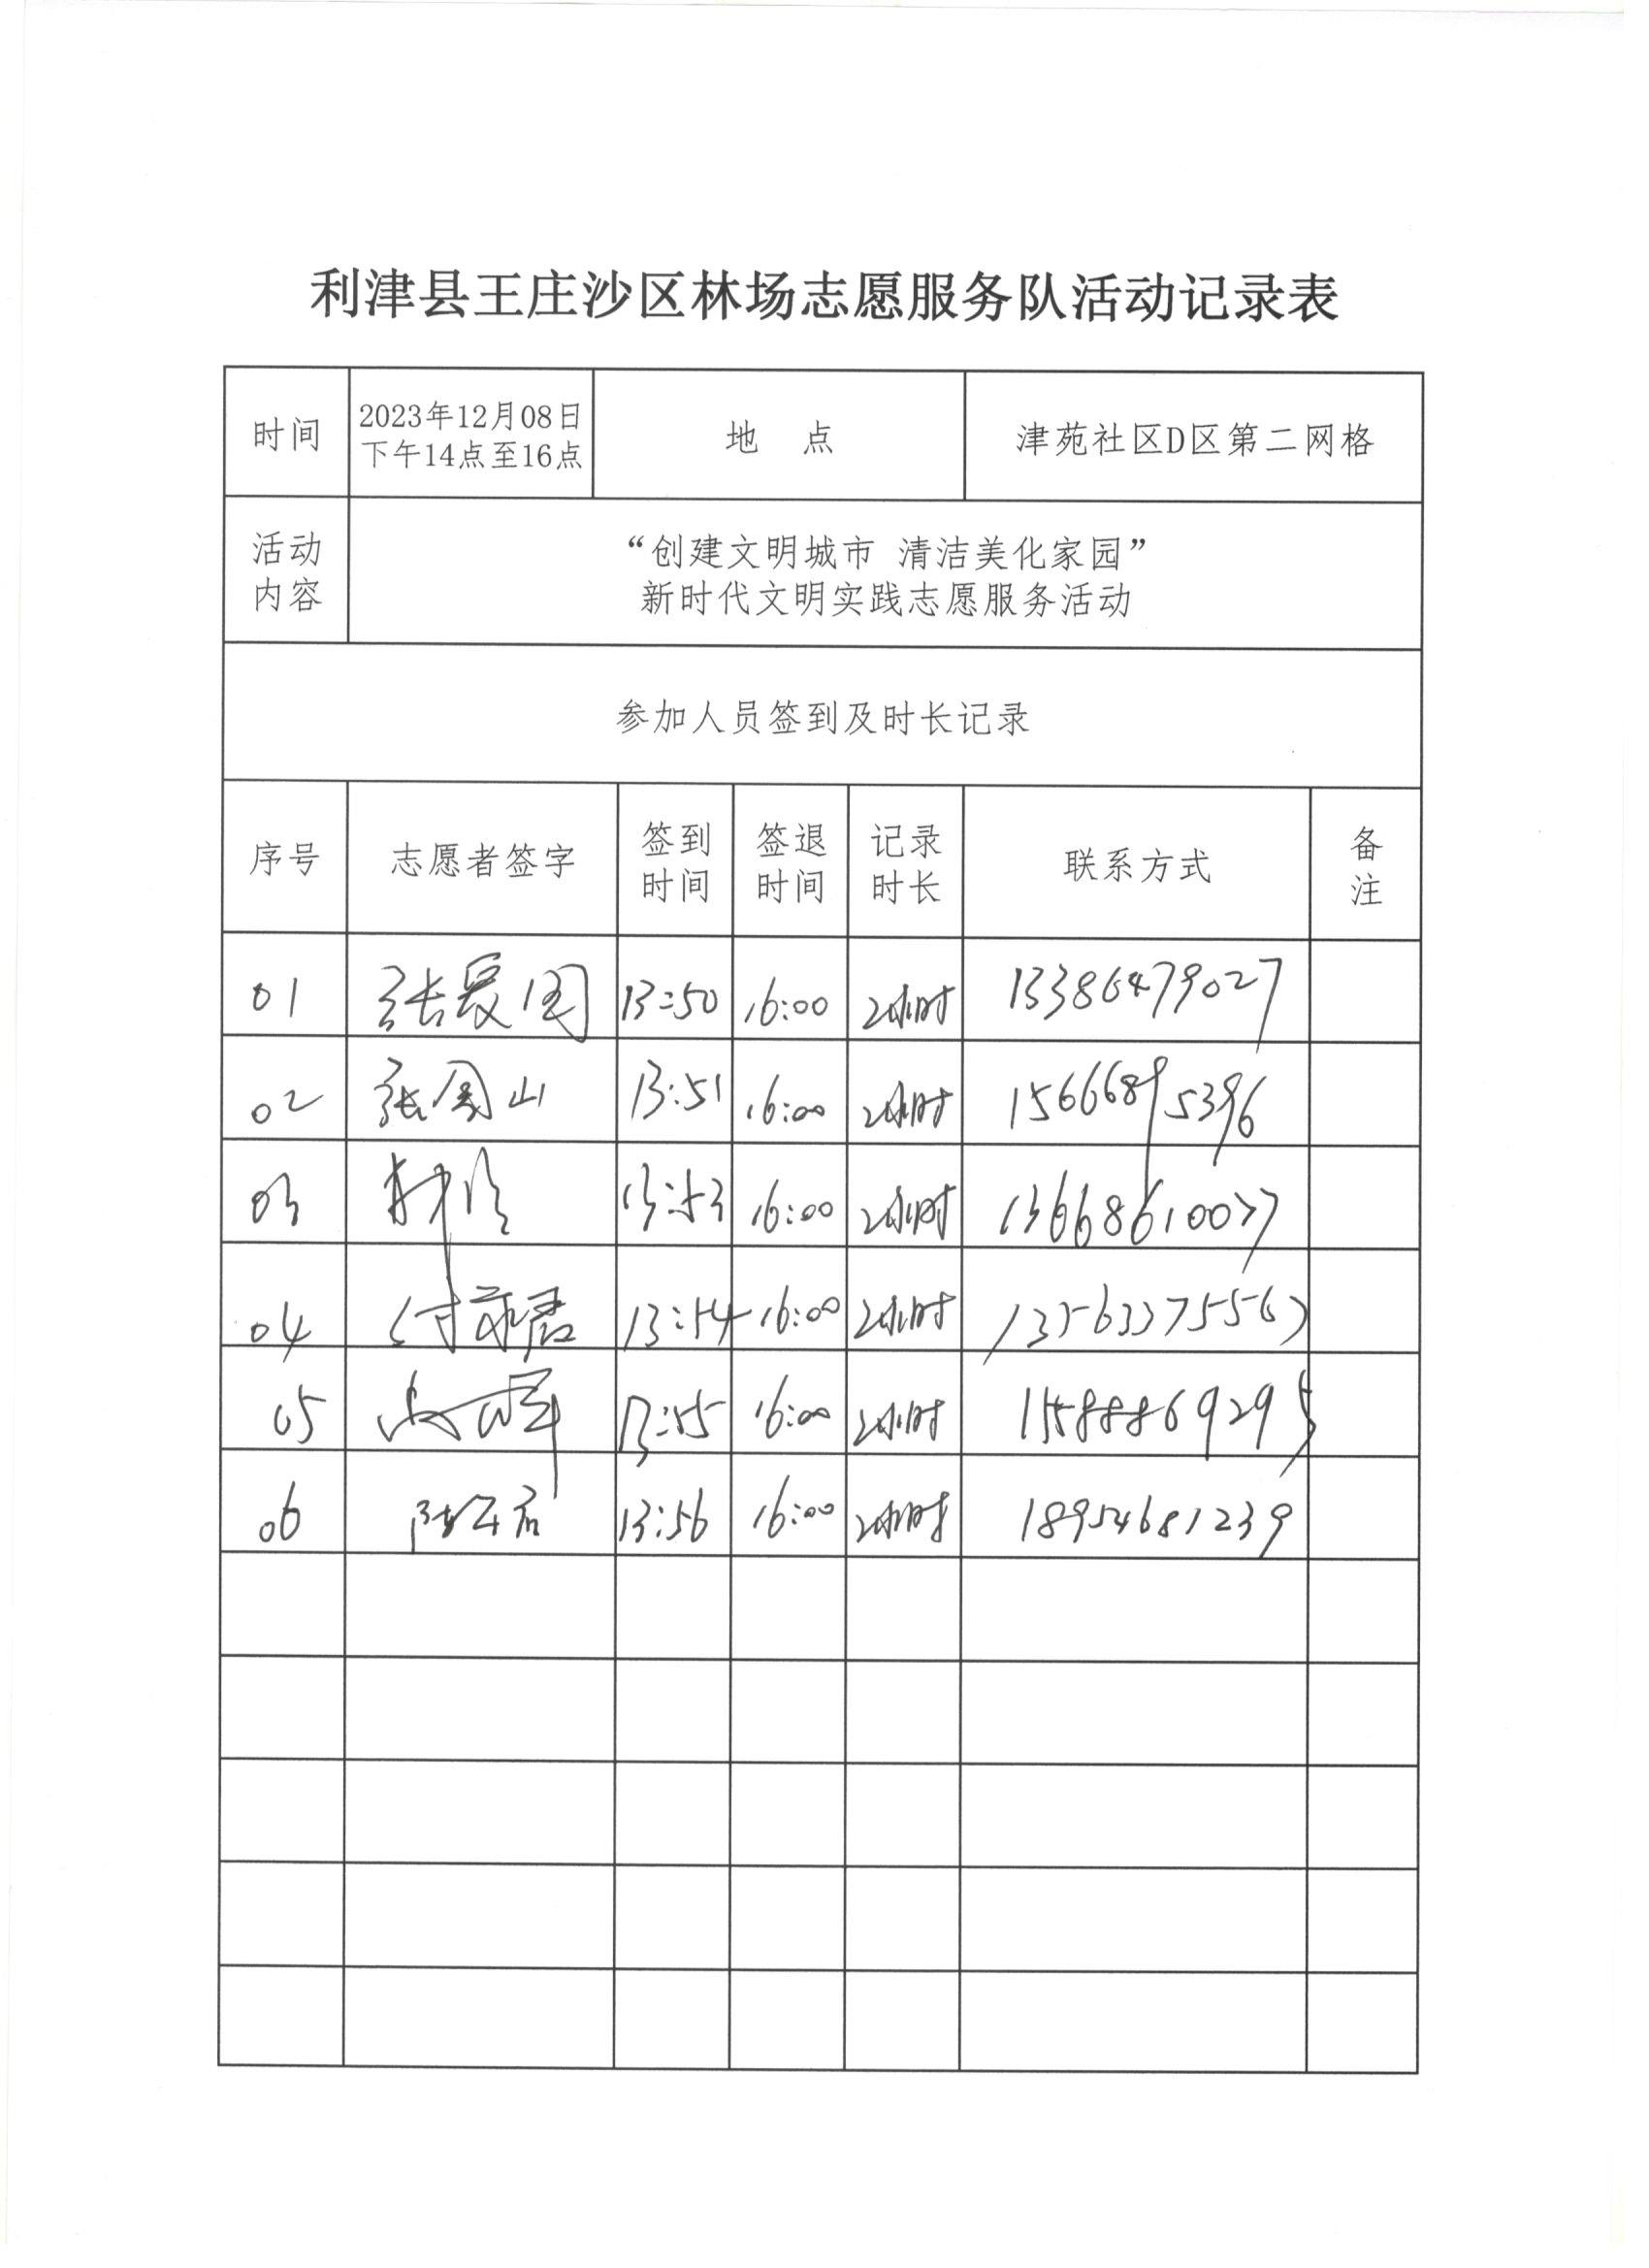 利津县王庄沙区林场志愿服务队活动记录表
时间 2023年12月08日 地 点 津苑社区D区第二网格
下午14点至16点
活动 “创建文明城市 清洁美化家园”
内容 新时代文明实践志愿服务活动
参加人员签到及时长记录
序号 志愿者签字 签到时间 签退时间 记录时长 联系方式 备注
01 张爱国 13:50 16:00 2小时 13386479027
02 张国山 13:51 16:00 2小时 15666895396
03 13:53 16:00 2小时 13668610077
04 付 君 13:54 16:00 2小时 13563375567
05 13:55 16:00 2小时 15888869295
06 陈 君 13:56 16:00 2小时 18954681239